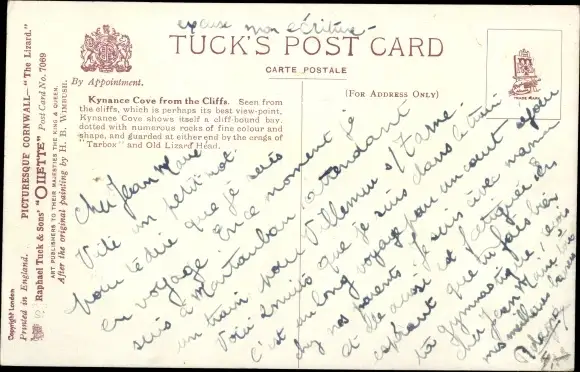 excuse mon écriture -
TUCK'S POST CARD
CARTE POSTALE
By Appointment.
(FOR ADDRESS ONLY)
TRADE MARK
Kynance Cove from the Cliffs. Seen from
the cliffs, which is perhaps its best view-point,
Kynance Cove shows itself a cliff-bound bay,
dotted with numerous rocks of fine colour and
shape, and guarded at either end by the crags of
"Tarbox" and Old Lizard Head.
Copyright London
Printed in England. PICTURESQUE CORNWALL— "The Lizard."
Raphael Tuck & Sons' "OILETTE" Post Card No. 7069
ART PUBLISHERS TO THEIR MAJESTIES THE KING & QUEEN.
After the original painting by H. B. WIMBUSH.
Cher Jean Marie
Vite un petit mot
pour te dire que je suis
en voyage. En ce moment je
suis à Montauban attendant
un train pour Villemur s/Tarn
Voici minuit que je suis dans le train
C'est un long voyage pour un court séjour
chez nos parents. Je suis avec maman
et elle aussi est fatiguée. Es
que tu fais bien
ta Gymnastique
cher Jean Marie
mes meilleurs